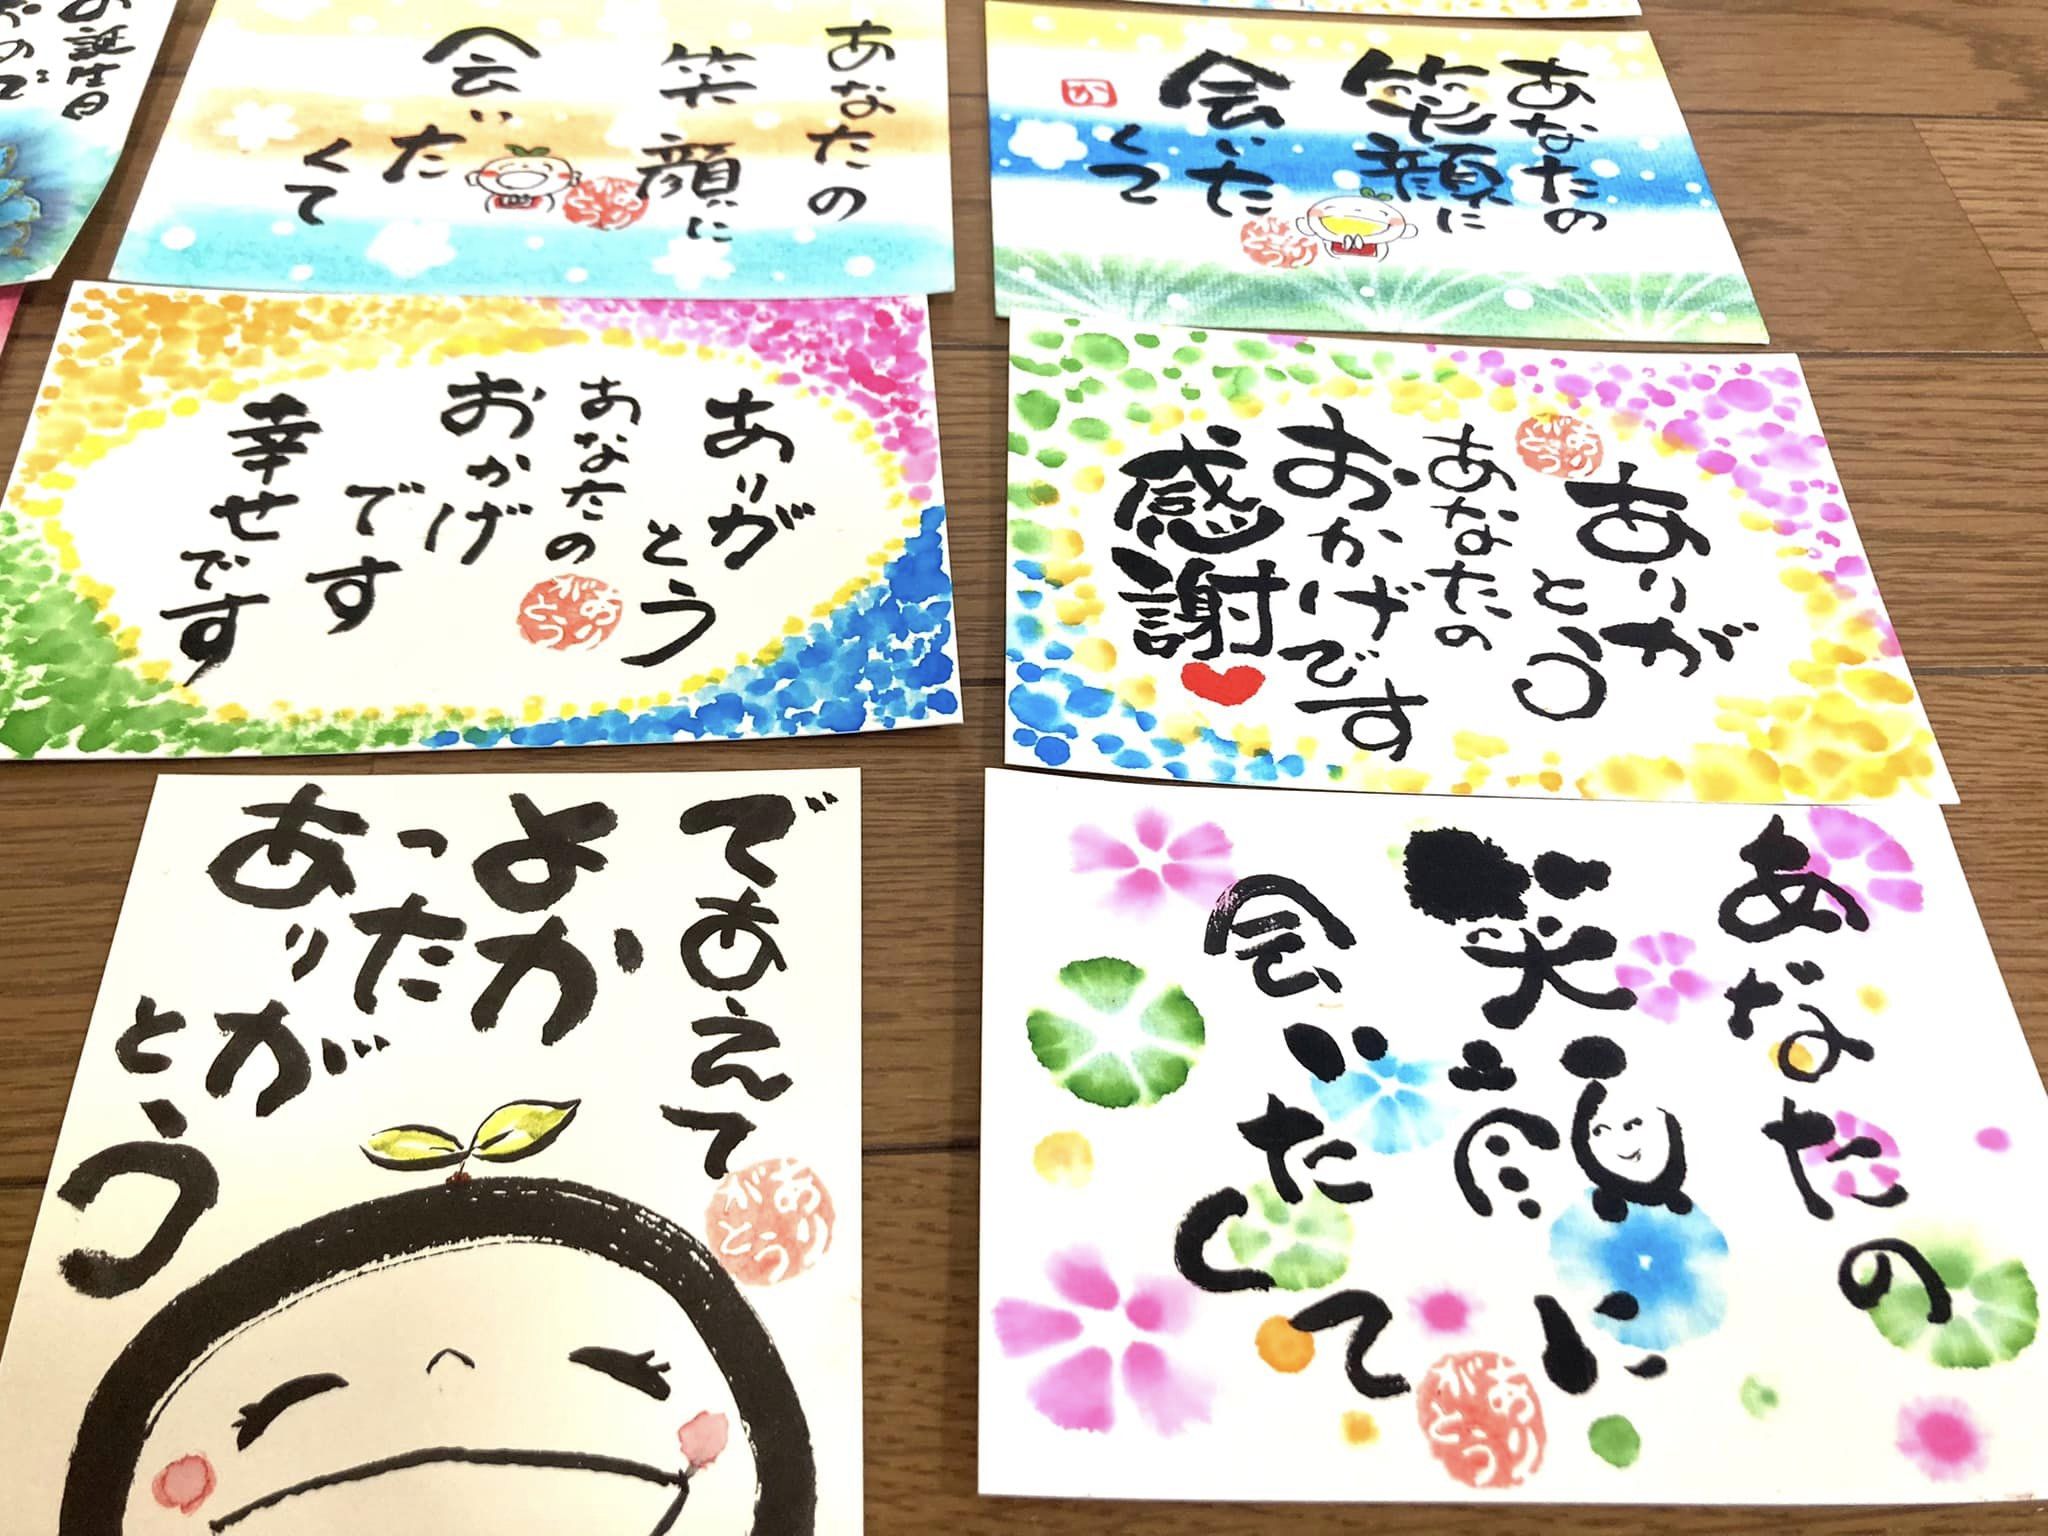 お誕生日
あなたの
笑顔に
会いた
くて
ありがとう
あなたの
笑顔に
会いた
くて
か
ありがとう
ありが
とう
あなたの
おかげ
です
幸せです
ありがとう
ありが
とう
あなたの
おかげです
感謝
ありがとう
であえて
よか
った
あり
がとう
ありがとう
あなたの
笑顔に
会いたくて
ありがとう